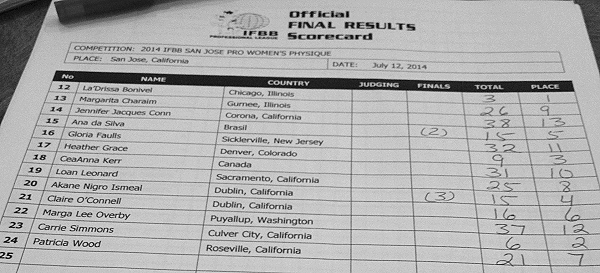 Official
FINAL RESULTS
Scorecard
IFBB
PROFESSIONAL LEAGUE
COMPETITION: 2014 IFBB SAN JOSE PRO WOMEN'S PHYSIQUE
PLACE: San Jose, California DATE: July 12, 2014
No NAME COUNTRY JUDGING FINALS TOTAL PLACE
12 La'Drissa Bonivel Chicago, Illinois 3 1
13 Margarita Charaim Gurnee, Illinois 26 9
14 Jennifer Jacques Conn Corona, California 38 13
15 Ana da Silva Brasil (2) 15 5
16 Gloria Faulls Sicklerville, New Jersey 32 11
17 Heather Grace Denver, Colorado 9 3
18 CeaAnna Kerr Canada 31 10
19 Loan Leonard Sacramento, California 25 8
20 Akane Nigro Ismeal Dublin, California (3) 15 4
21 Claire O'Connell Dublin, California 16 6
22 Marga Lee Overby Puyallup, Washington 37 12
23 Carrie Simmons Culver City, California 6 2
24 Patricia Wood Roseville, California 21 7
25